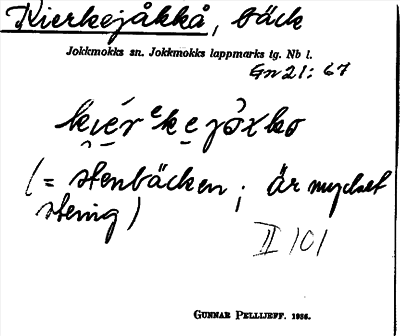 Kierkejåkkå, bäck
Jokkmokks sn. Jokkmokks lappmarks tg. Nb l.
Gn 21: 67
(= stenbäcken; är mycket
stenig)
II 101
GUNNAR PELLIJEFF. 1936.